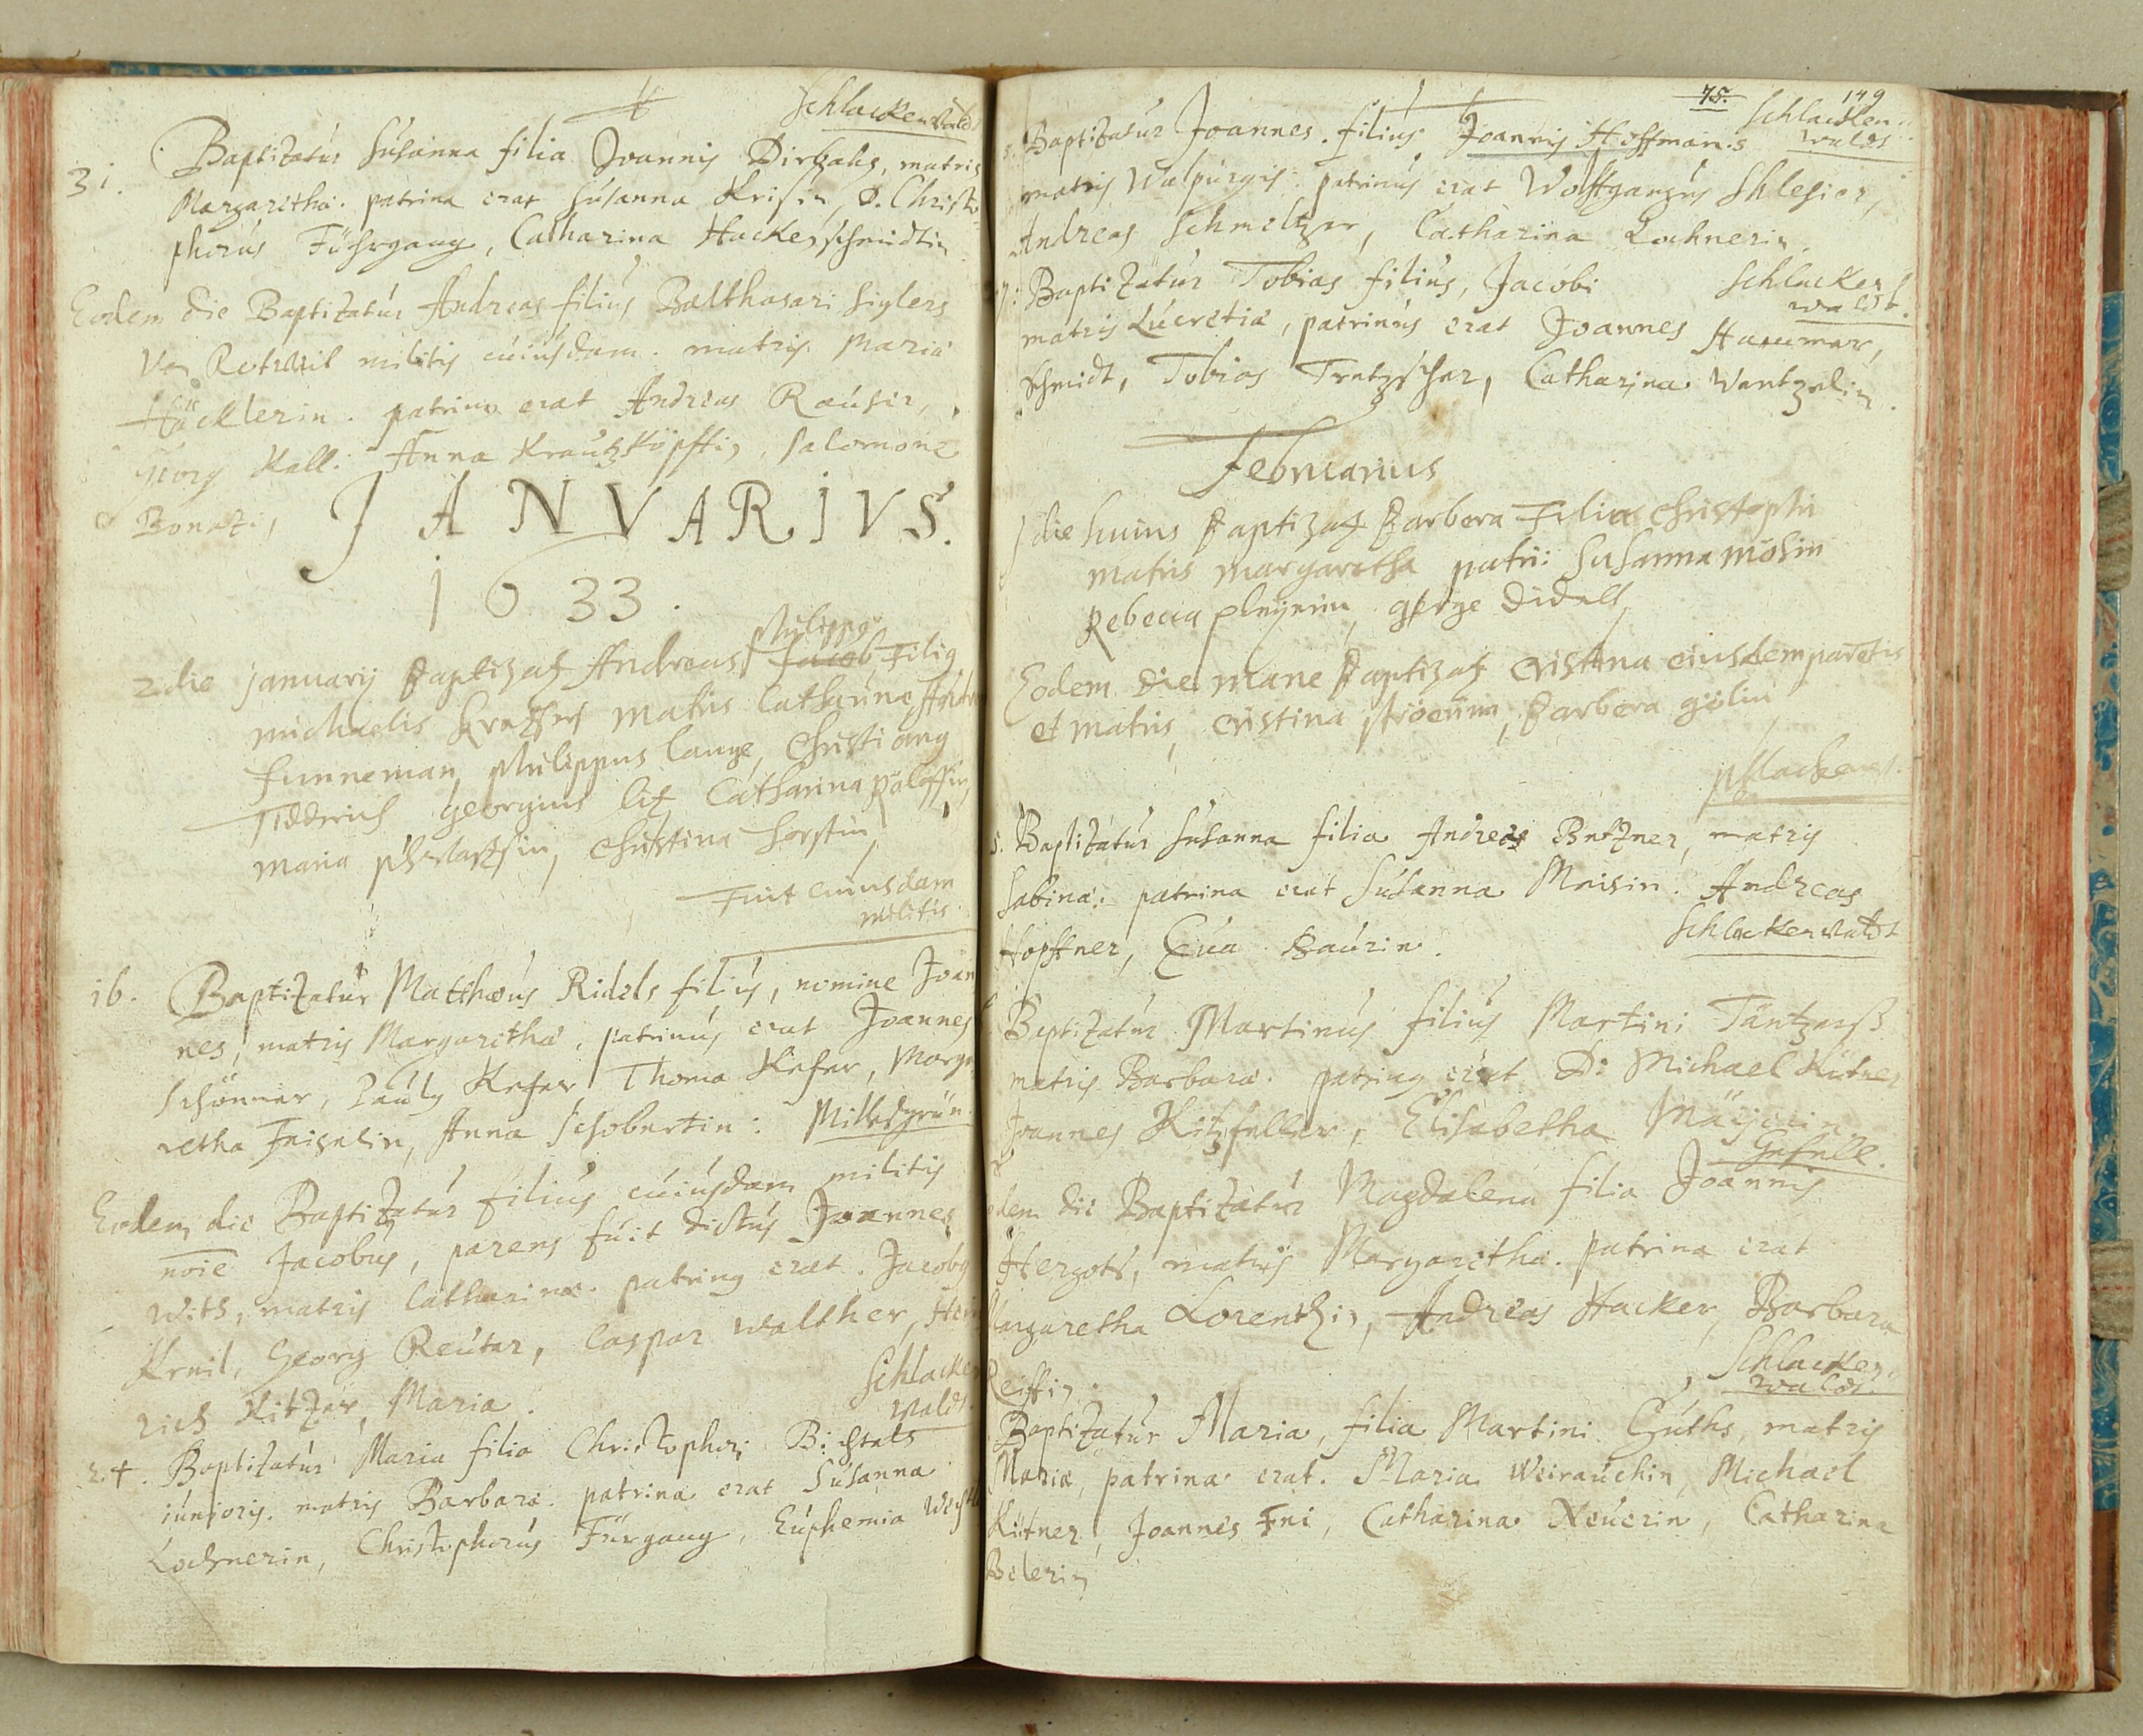 Schlackenwald
31. Baptizatur Susanna filia Joannis matris
Margarethæ. patrina erat Susanna Krisin, D. Christo
phorus Führgang, Catharina Hackerschmidtin
Eodem die Baptizatur Andreas filius Balthasari Siglers
von Rotweil militis cuiusdam. matris Maria
Häcklerin. patrinus erat Andreas Rauser,
Georg Kall. Anna Krautzköpffin, Salomone
Bonati,
JANVARIVS.
1633.
Philippus
2 die January Baptizat Andreas Jacob Filig
michaelis matris Catharinæ,
Funneman, Philippus lange, Christiang
Tidderich Georgius Catharina
maria christina
Fuit cuiusdam
militis
16. Baptizatur Matthæus Ridels filius, nomine Joan
nes, matris Margarethæ, patrinus erat Joannes
Schönner, Pauly Kefer Thoma Kefer, Marga
retha Feiselin, Anna Schobertin: Millesgrün
Eodem die Baptizatur filius cuiusdam militis
noie Jacobus, parens fuit dictus Joannes
With, matris Catharinæ. patrinq erat. Jacobq
Kreil, Georg Reuter, Caspar Walther, Hein
rich Kitzer, Maria.
Schlacken
waldt.
24. Baptizatur Maria filia Christophori Bichtels
iunioris. matris Barbaræ. patrina erat Susanna
Lochnerin, Christophorus Fürgang, Euphemia
75. 149
Schlacken
waldt
Baptizatur Joannes. filius Joannis Hoffmans
matris Walpurgis. patrinus erat Wolffgangus Shlesier,
Andreas Schmeltzer, Catharina Lochnerin.
Baptizatur Tobias filius, Jacobi Schlacken
waldt.
matris Lucretiæ, patrinus erat Joannes Hammer,
Schmidt, Tobias Tretzscher, Catharina Wentzelin.
Februarius
die huius Baptizat Barbara Filia Christophi
matris margaretha patri: Susanna mösin
Rebecca George
Eodem Die mane Baptizat Cristina eiusdem paretis
et matris, Cristina Barbera
Schlackenw.
5. Baptizatur Susanna filia Andreæ matris
Sabinæ: patrina erat Susanna Meisin. Andreas
Schlackenwaldt
Höpffner, Eua Baurin.
Baptizatur Martinus filius Martini Täntzerß
matris Barbaræ. patrinq erat D: Michael Kütner
Joannes Kitzfeller, Elisabetha
Gefelle.
odem die Baptizatur Magdalena filia Joannis
Hergots, matris Margarethæ. patrina erat
Margaretha Lorentzin, Andreas Hacker, Barbara
Schlacken
waldt.
Reiffin.
Baptizatur Maria, filia Martini Guths, matris
Mariæ, patrina erat. Maria Weirauchin, Michael
Kütner, Joannes Fni, Catharina Neuerin, Catharina
Belerin